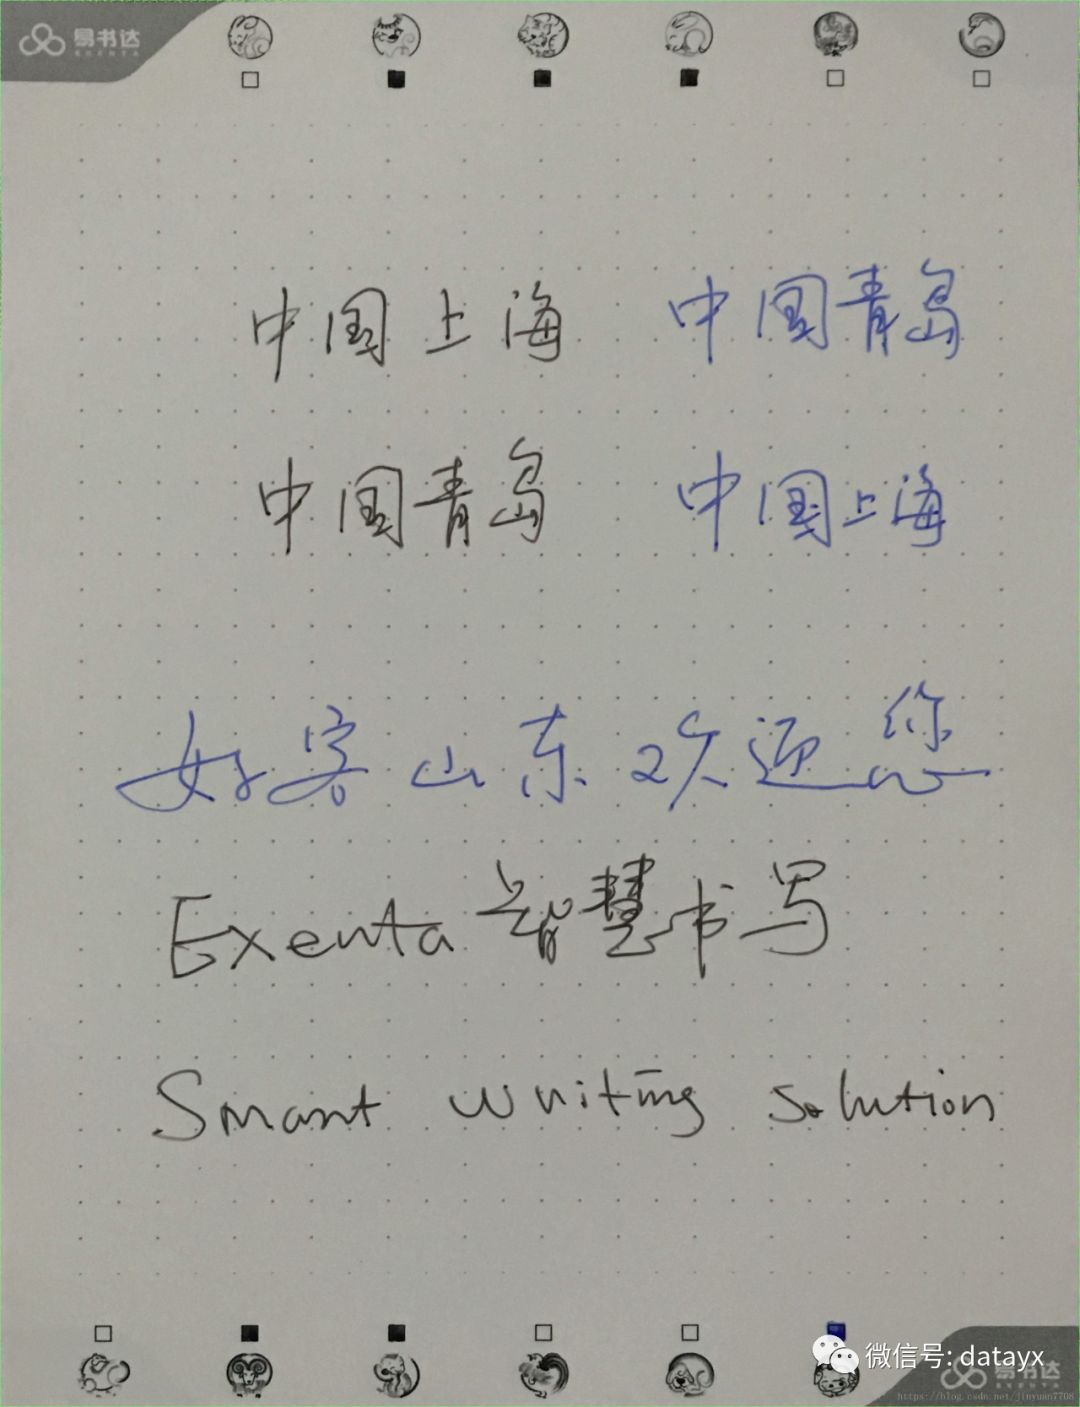 易书达
EXENTA
中国上海 中国青岛
中国青岛 中国上海
好客山东欢迎您
Exenta 智慧书写
Smart writing solution
微信号: datayx
易书达
EXENTA
https://blog.csdn.net/jinyuan7708